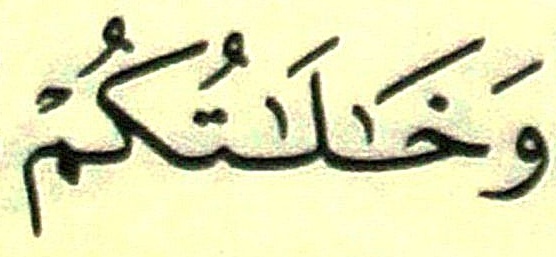 وَخَٰلَٰتُكُمْ